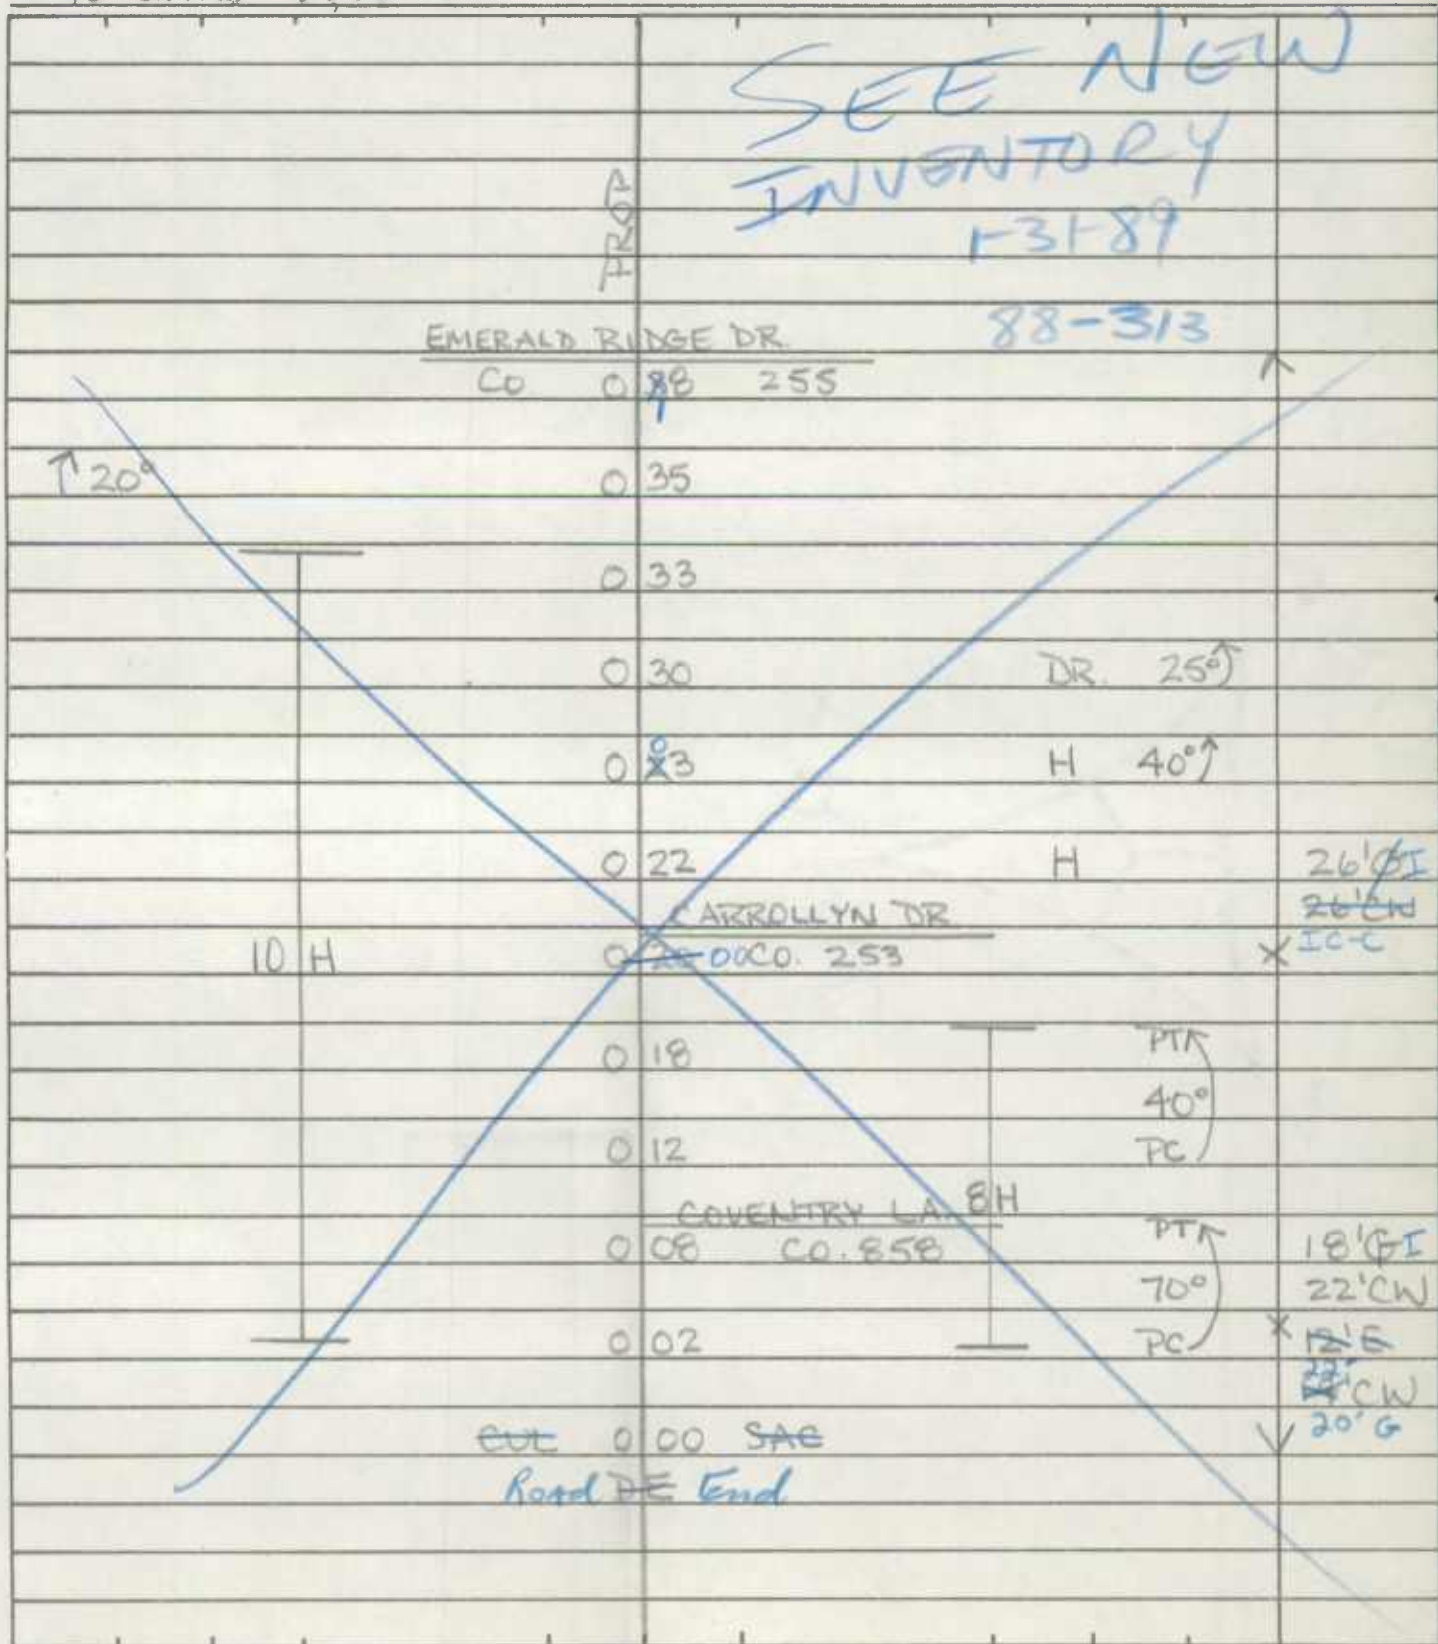 SEE NEW
INVENTORY
1-31-89
PROP
88-313
EMERALD RIDGE DR.
CO 0 88 255
↑ 20°
0 35
0 33
0 30 DR. 25°↑
0 03 H 40°↑
0 22 H 26' I
CARROLLYN DR
26' CW
10 H 0 00 CO. 253 X IC-C
0 18 PT
40°
0 12 PC
COVENTRY LA. 8H
0 08 CO. 858 PT 18' GI
70° 22' CW
0 02 PC X 12' E
22' CW
20' G
CUL 0 00 SAC
Road DE End